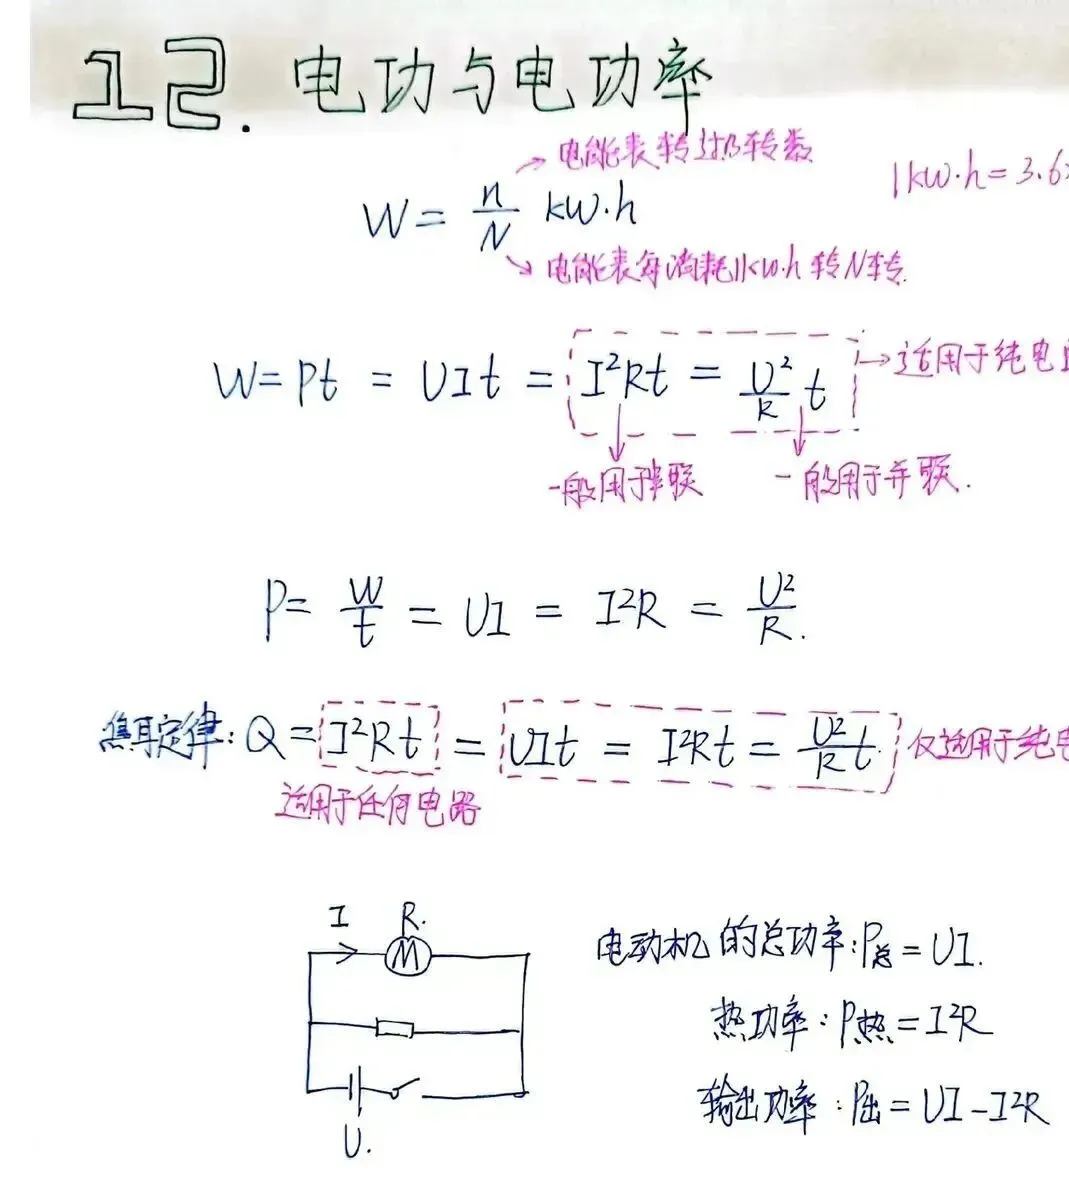 12. 电功与电功率
电能表转过的转数
1kw·h=3.6
W= n/N kw·h
电能表每消耗1kw·h转N转.
W=Pt = UIt = I²Rt = U²/R t →适用于纯电
一般用于串联 一般用于并联.
P= W/t = UI = I²R = U²/R.
焦耳定律: Q=I²Rt = UIt = I²Rt = U²/R t. 仅适用于纯电
适用于任何电路
I R.
M
U.
电动机的总功率:P总=UI.
热功率:P热=I²R
输出功率:P出=UI-I²R